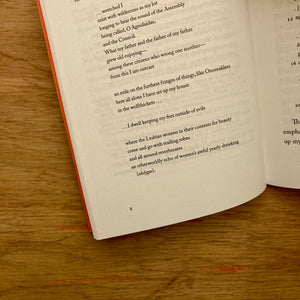 wretched I
exist with wilderness as my lot
longing to hear the sound of the Assembly
being called, O Agesilaidas,
and the Council.
What my father and the father of my father
grew old enjoying—
among these citizens who wrong one another—
from this I am outcast
an exile on the furthest fringes of things, like Onomaklees
here all alone I have set up my house
in the wolfthickets . . .
. . . I dwell keeping my feet outside of evils
where the Lesbian women in their contests for beauty
come and go with trailing robes
and all around reverberates
an otherworldly echo of women's awful yearly shrieking
(ololyges).
12
16
Th
empha
up my